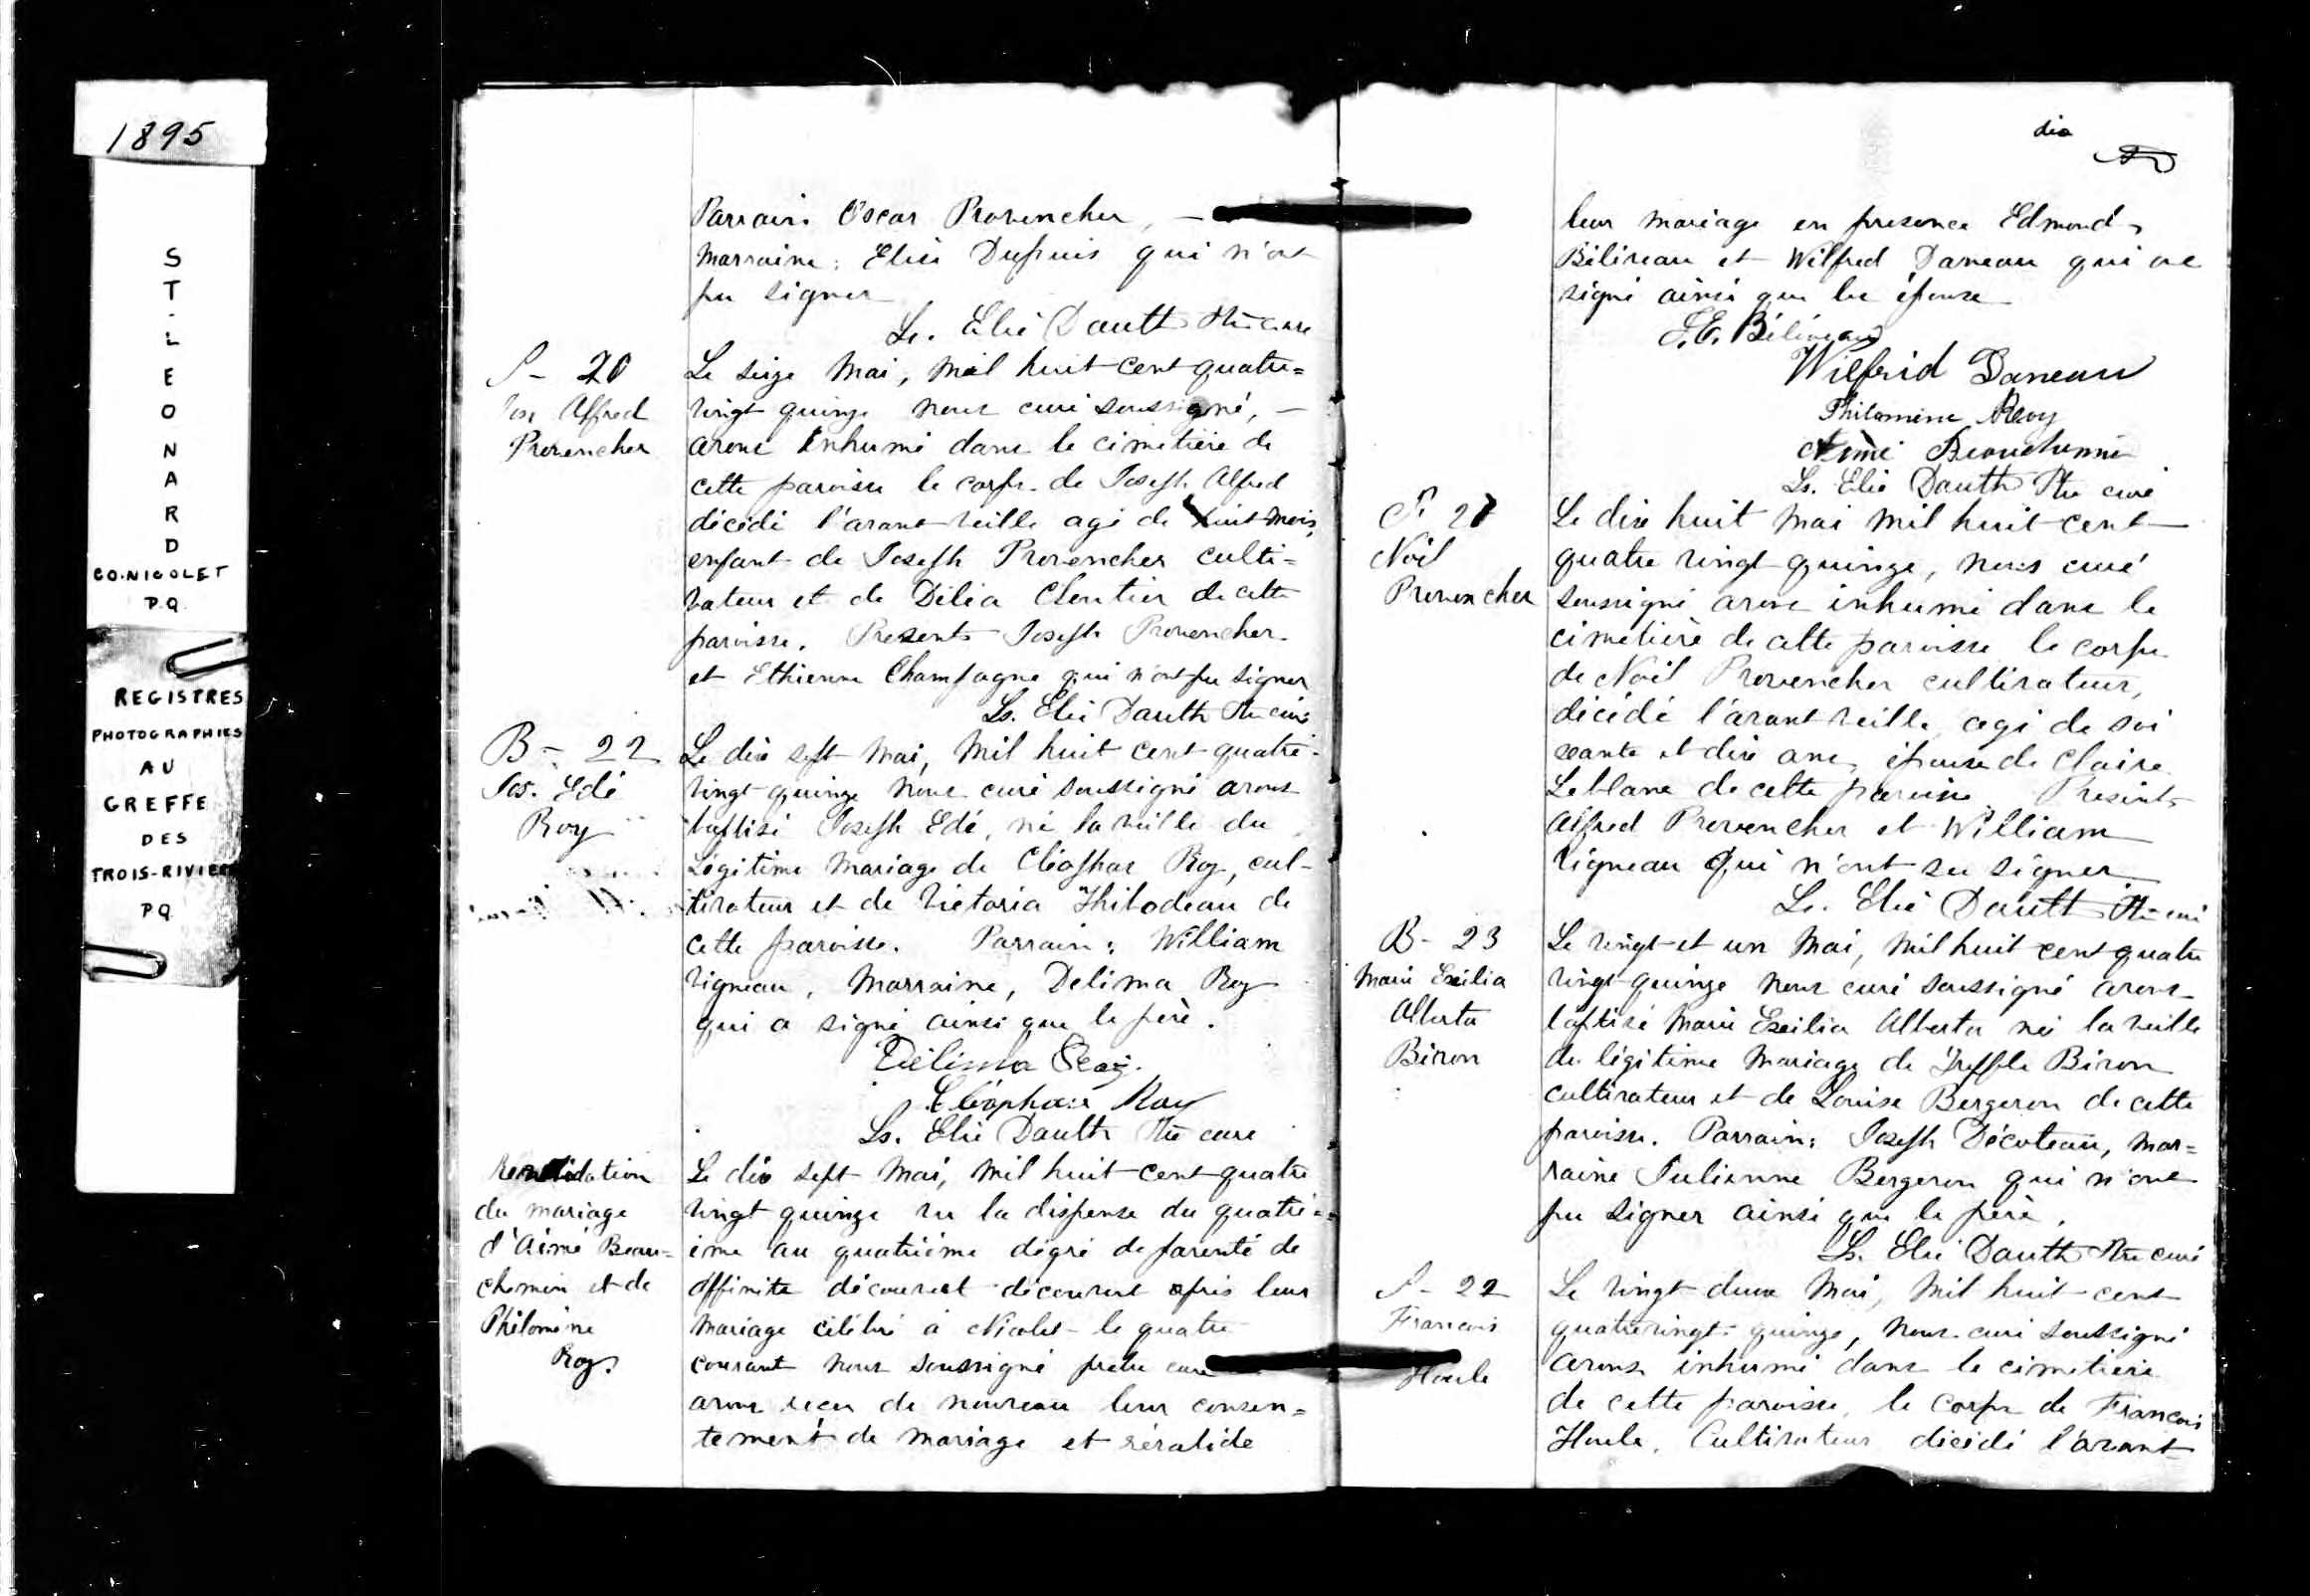 1895
ST. LEONARD
CO. NICOLET
P.Q.
REGISTRES
PHOTOGRAPHIES
AU
GREFFE
DES
TROIS-RIVIER
P.Q
Parrain Oscar Provencher, —
Marraine: Elise Dupuis qui n'ont
pu signer
Ls. Elie Dauth Ptre cure
S - 20
Jos. Alfred
Provencher
Le seize Mai, mil huit cent quatre=
vingt quinze nous curé soussigné, —
avons inhumé dans le cimetière de
cette paroisse le corps de Joseph Alfred
décédé l'avant-veille agé de huit mois,
enfant de Joseph Provencher culti=
vateur et de Délia Cloutier de cette
paroisse. Presents Joseph Provencher
et Ethienne Champagne qui n'ont pu signer
Ls. Elie Dauth Ptre curé
B - 22
Jos. Edé
Roy
Le dix sept Mai, Mil huit cent quatre-
vingt-quinze nous curé soussigné avons
baptisé Joseph Edé, né la veille du
Légitime Mariage de Cléophas Roy, cul-
tivateur et de Victoria Thibodeau de
cette paroisse. Parrain: William
Vigneau, Marraine, Delima Roy
qui a signé ainsi que le père.
Délima Roy.
Cléophas Roy
Ls. Elie Dauth Ptre cure
du mariage
d'Aimé Beau=
chemin et de
Philomène
Roy.
Le dix sept Mai, mil huit cent quatre
vingt quinze vu la dispense du quatri=
ème au quatrième dégré de parenté de
affinité découvert découvert après leur
Mariage célébré à Nicolet le quatre
courant nous soussigné prêtre curé
avons reçu de nouveau leur consen=
tement de mariage et révalidé
dix
leur mariage en presence Edmond
Béliveau et Wilfred Daneau qui ont
signé ainsi que les épouse
J.E. Béliveau
Wilfrid Daneau
Philomène Roy
Aimé Beauchemin
Ls. Elie Dauth Ptre curé
S. 21
Noël
Provencher
Le dix huit Mai mil huit cent
quatre vingt quinze, nous curé
soussigné avons inhumé dans le
cimetière de cette paroisse le corps
de Noël Provencher cultivateur,
décédé l'avant veille, agé de soi
xante et dix ans, épouse de Claire
Leblanc de cette paroisse. Presents
Alfred Provencher et William
Vigneau qui n'ont su signer
Ls. Elie Dauth Ptre curé
B - 23
Marie Exilia
Alberta
Biron
Le vingt et un Mai, Mil huit cent quatre
vingt-quinze nous curé soussigné avons
baptisé Marie Exilia Alberta née la veille
du légitime Mariage de Trefflé Biron
cultivateur et de Louise Bergeron de cette
paroisse. Parrain: Joseph Décoteau, Mar=
raine Julienne Bergeron qui n'ont
pu signer ainsi que le père.
Ls. Elie Dauth Ptre curé
S - 22
Francois
Houle
Le vingt deux Mai, Mil huit cent
quatrevingt-quinze, nous curé soussigné
avons inhumé dans le cimetière
de cette paroisse, le corps de Francois
Houle, Cultivateur décédé l'avant-